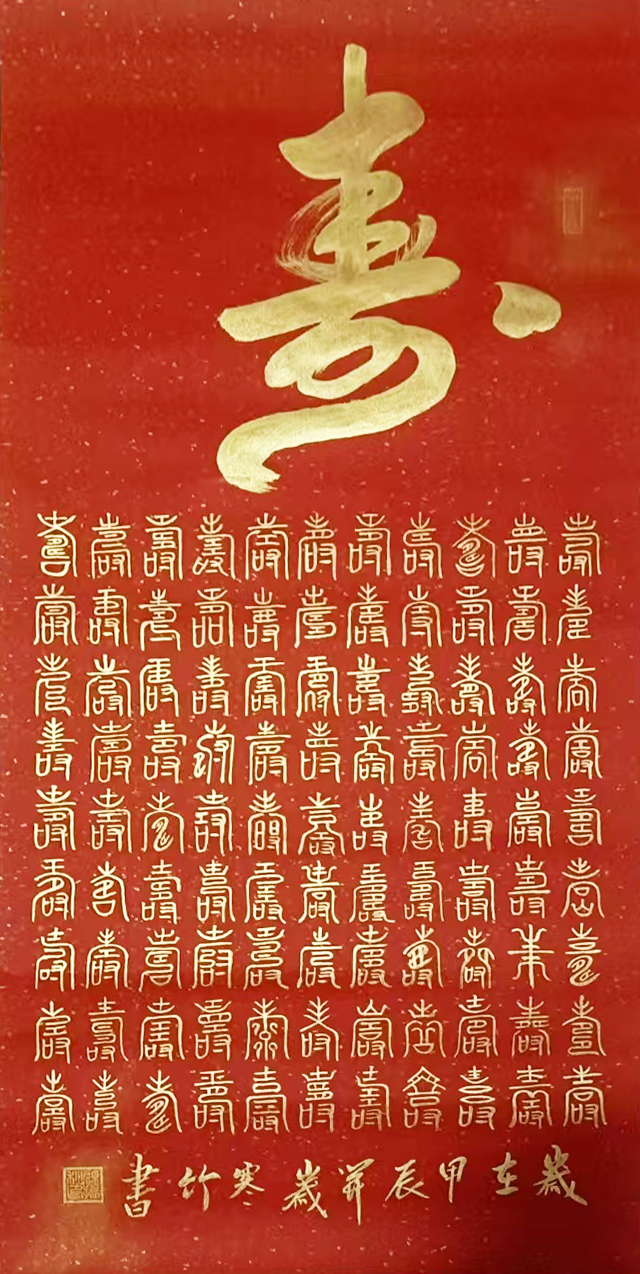 寿
壽壽壽壽壽壽壽壽壽壽壽
壽壽壽壽壽壽壽壽壽壽壽
壽壽壽壽壽壽壽壽壽壽壽
壽壽壽壽壽壽壽壽壽壽壽
壽壽壽壽壽壽壽壽壽壽壽
壽壽壽壽壽壽壽壽壽壽壽
壽壽壽壽壽壽壽壽壽壽壽
壽壽壽壽壽壽壽壽壽壽壽
壽壽壽壽壽壽壽壽壽壽壽
歲在甲辰歲寒竹書